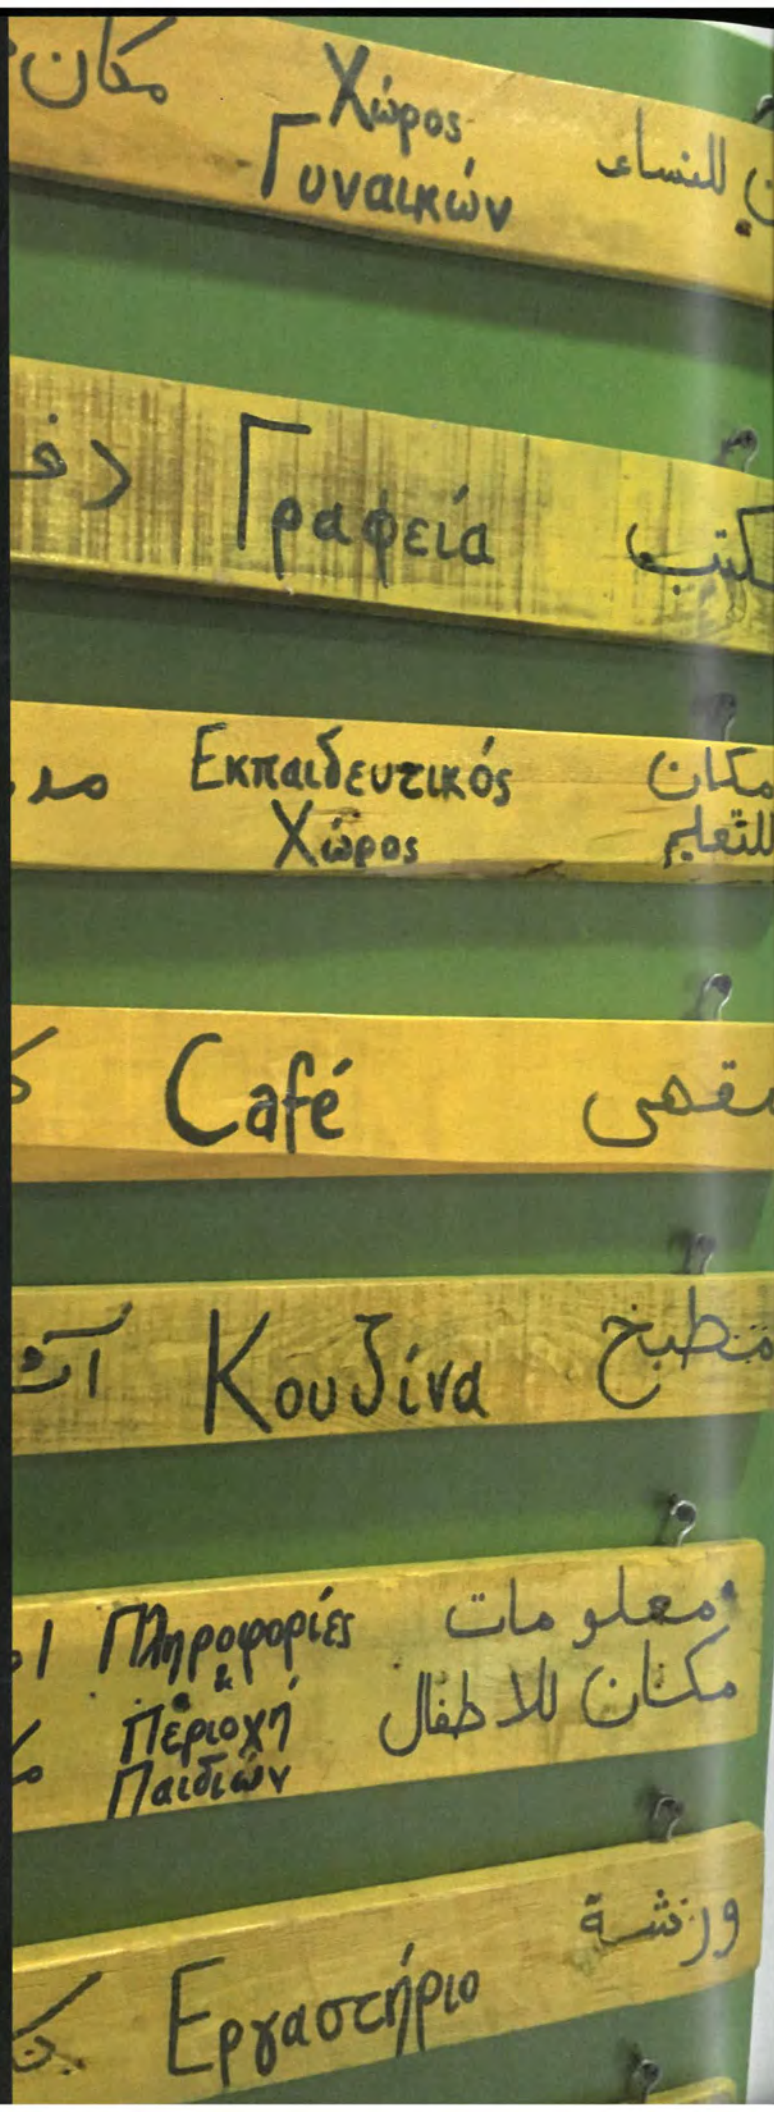 مكان
Χώρος
Γυναικών
للنساء
Γραφεία
Εκπαιδευτικός
Χώρος
مكان
للتعليم
Café
مقهى
Κουζίνα
مطبخ
Πληροφορίες
&
Περιοχή
Παιδιών
معلومات
مكان للاطفال
Εργαστήριο
ورشة